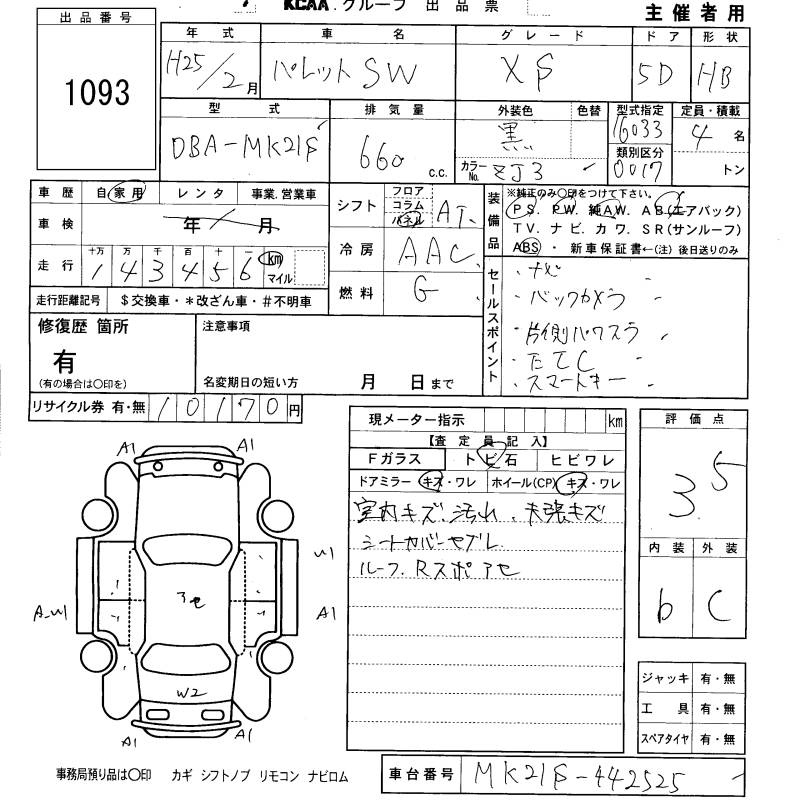 KCAA.グループ 出品票
主催者用
出品番号
1093
年式 車名 グレード ドア 形状
H25/2月 パレットSW XS 5D HB
型式 排気量 外装色 色替 型式指定 定員・積載
DBA-MK21S 660 c.c. 黒 16033 4名
カラーNo. ZJ3 類別区分 0017 トン
車歴 自家用 レンタ 事業.営業車
車検 年 月
走行 十万 万 千 百 十 一
143456 km マイル
走行距離記号 $交換車・*改ざん車・#不明車
シフト フロア コラム パネル AT
冷房 AAC
燃料 G
装備品 ※純正のみ○印をつけて下さい。
PS. PW. 純AW. AB(エアバック)
TV. ナビ. カワ. SR(サンルーフ)
ABS・新車保証書←(注)後日送りのみ
セールスポイント
・ナビ
・バックカメラ
・片側パワスラ
・たてC
・スマートキー
修復歴 箇所
有
(有の場合は○印を)
注意事項
名変期日の短い方 月 日まで
リサイクル券 有・無 10170円
現メーター指示 km
【査定員記入】
Fガラス トビ石 ヒビワレ
ドアミラー キズ・ワレ ホイール(CP) キズ・ワレ
室内キズ、汚れ、未張キズ
シートカバーセブレ
ルーフ.Rスポアセ
評価点
3.5
内装 外装
b C
ジャッキ 有・無
工具 有・無
スペアタイヤ 有・無
A1 A1
W1
アセ
A.W1 A1
W2
A1 A1
事務局預り品は○印 カギ シフトノブ リモコン ナビロム
車台番号 MK21S-442525